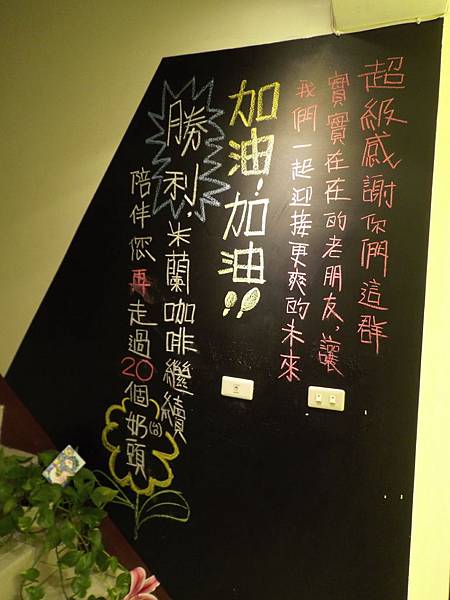 超級感謝你們這群
實實在在的老朋友，讓
我們一起迎接更爽的未來
加油！加油!!
勝利，米蘭咖啡繼續
陪伴您再走過20個奶頭(台)